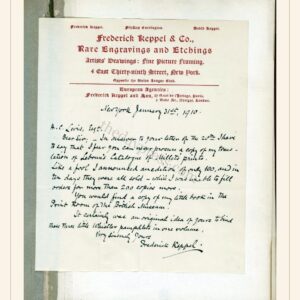 Frederick Keppel. FitzRoy Carrington. David Keppel.
Frederick Keppel & Co.,
Rare Engravings and Etchings
Artists' Drawings: Fine Picture Framing.
4 East Thirty-ninth Street, New York.
Opposite the Union League Club.
European Agencies:
Frederick Keppel and Son,
New York January 31st, 1910.
Esq.
Dear Sir:- In answer to your letter of the 20th I have
to say that I fear you can never procure a copy of my trans-
lation of Lebrun's Catalogue of Millet's prints.
Like a fool I announced an edition of only 100, and in
ten days they were all sold - while I was unable to fill
orders for more than 200 copies more.
You would find a copy of my little book in the
Print Room of the British Museum.
It certainly was an original idea of yours to bind
those three little Whistler pamphlets in one volume.
Very sincerely Yours
Frederick Keppel